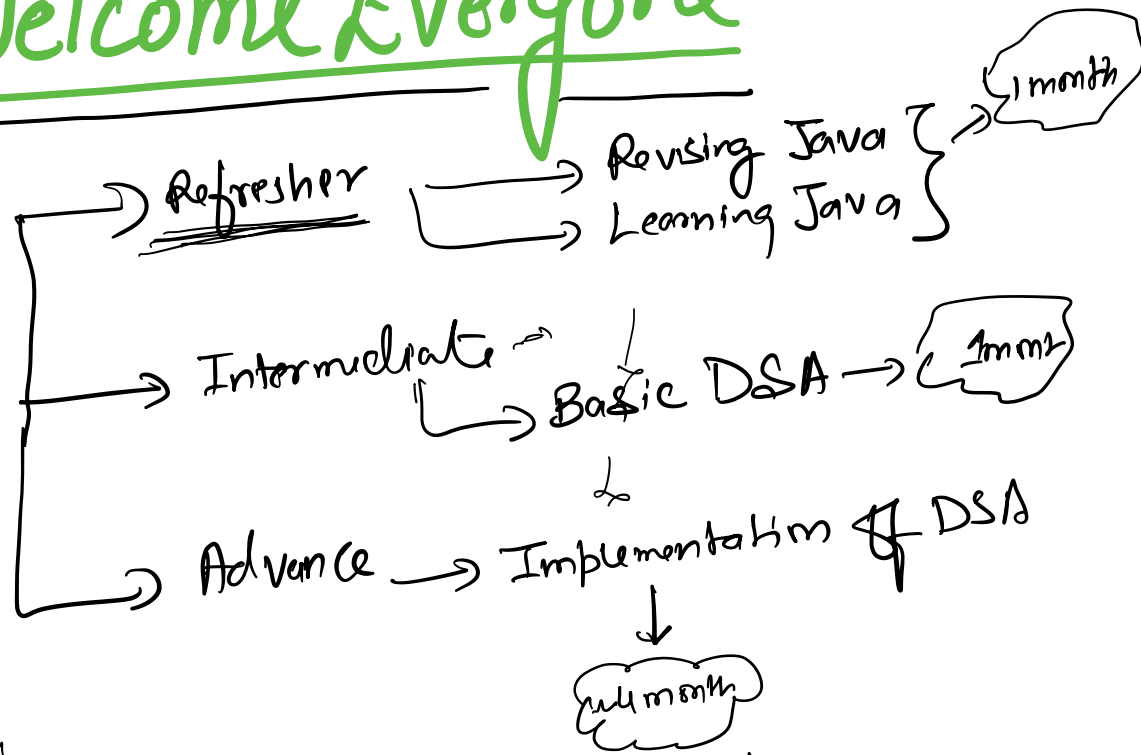 Welcome Everyone
Refresher
Revising Java
Learning Java
1 month
Intermediate
Basic DSA
Advance
Implementation of DSA
4 month